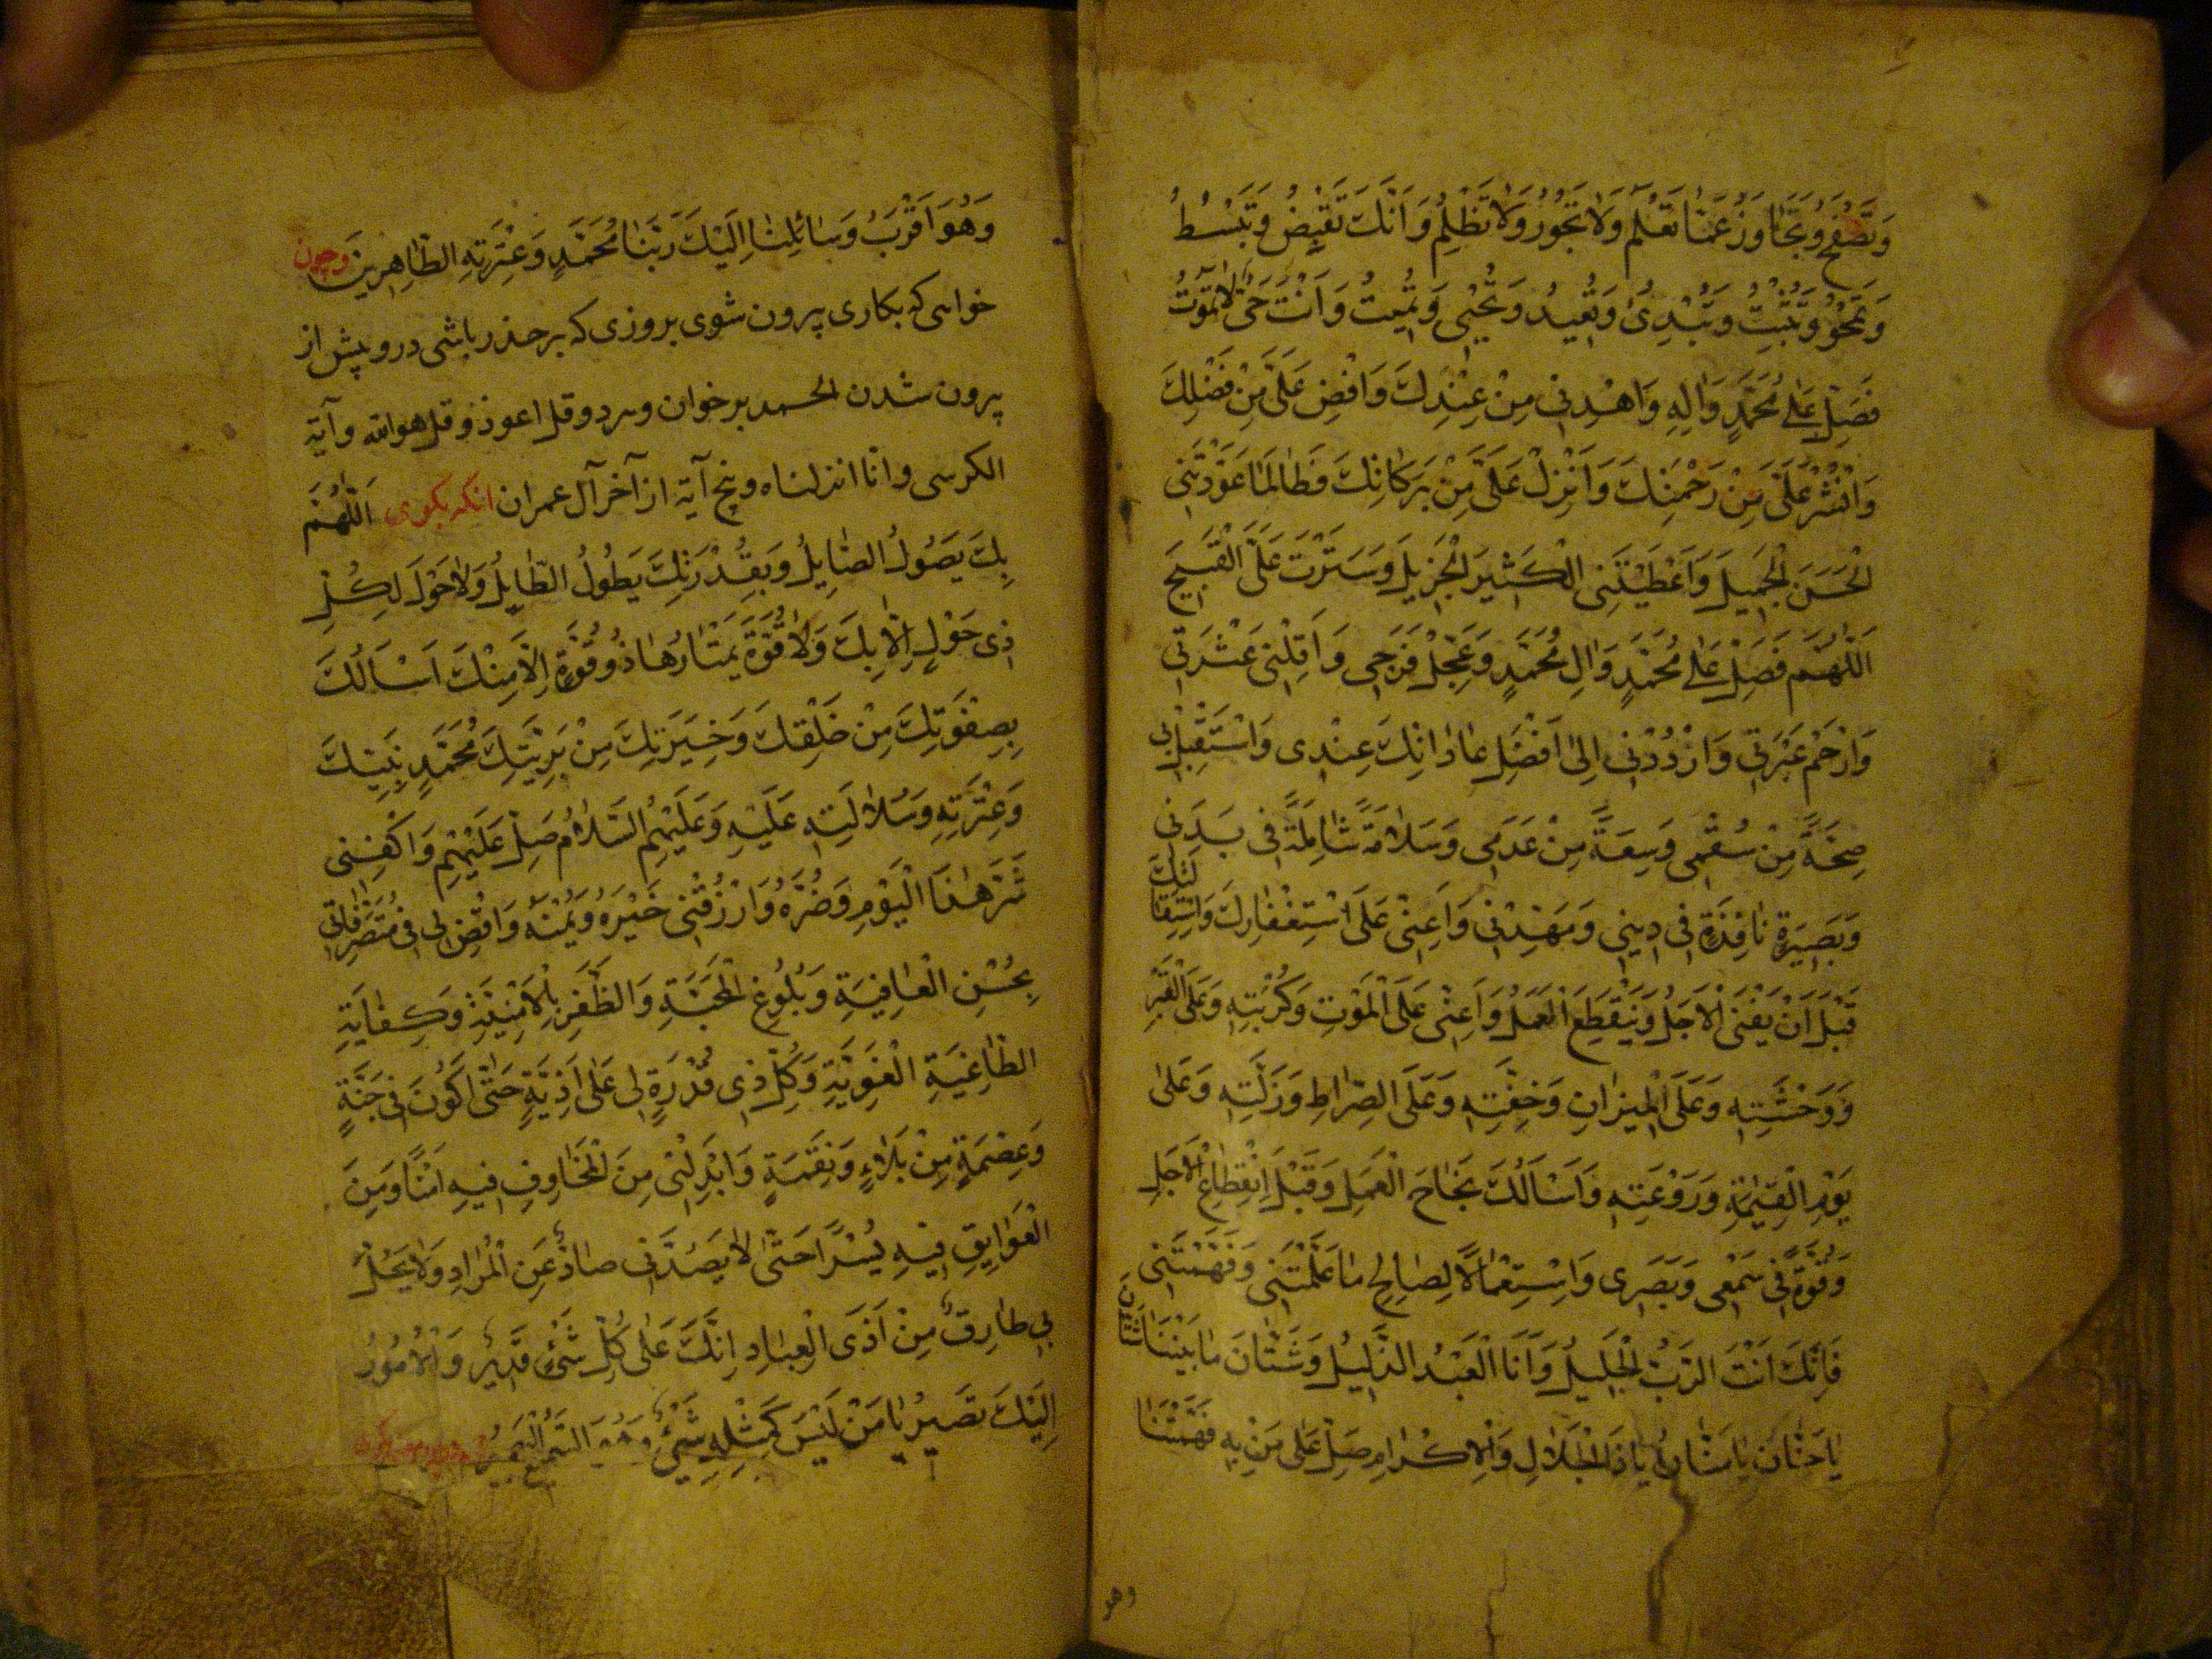 وَتَصْفَحُ وَتَجَاوَزُ عَمَّا تَعْلَمُ وَلَا تَجُورُ وَلَا تَظْلِمُ وَاَنَّكَ تَقْبِضُ وَتَبْسُطُ
وَتَمْحُو وَتُثْبِتُ وَتُبْدِئُ وَتُعِيدُ وَتُحْيِي وَتُمِيتُ وَاَنْتَ حَيٌّ لَا تَمُوتُ
فَصَلِّ عَلٰى مُحَمَّدٍ وَاٰلِهِ وَاهْدِنِي مِنْ عِنْدِكَ وَافِضْ عَلَيَّ مِنْ فَضْلِكَ
وَانْشُرْ عَلَيَّ مِنْ رَحْمَتِكَ وَاَنْزِلْ عَلَيَّ مِنْ بَرَكَاتِكَ فَطَالَمَا عَوَّدْتَنِي
الْحَسَنَ الْجَمِيلَ وَاَعْطَيْتَنِي الْكَثِيرَ الْجَزِيلَ وَسَتَرْتَ عَلَيَّ الْقَبِيحَ
اَللّٰهُمَّ فَصَلِّ عَلٰى مُحَمَّدٍ وَاٰلِ مُحَمَّدٍ وَعَجِّلْ فَرَجِي وَاَقِلْنِي عَثْرَتِي
وَارْحَمْ عَبْرَتِي وَارْدُدْنِي اِلٰى اَفْضَلِ عَادَاتِكَ عِنْدِي وَاسْتَقْبِلْ بِي
صِحَّةً مِنْ سُقْمِي وَسِعَةً مِنْ عَدَمِي وَسَلَامَةً شَامِلَةً فِي بَدَنِي
وَبَصِيرَةٍ نَافِذَةٍ فِي دِينِي وَمَهِّدْنِي وَاَعِنِّي عَلَى اسْتِغْفَارِكَ وَاسْتِقَالَتِكَ
قَبْلَ اَنْ يَفْنَى الْاَجَلُ وَيَنْقَطِعَ الْعَمَلُ وَاَعِنِّي عَلَى الْمَوْتِ وَكُرْبَتِهِ وَعَلَى الْقَبْرِ
وَوَحْشَتِهِ وَعَلَى الْمِيزَانِ وَخِفَّتِهِ وَعَلَى الصِّرَاطِ وَزَلَّتِهِ وَعَلٰى
يَوْمِ الْقِيٰمَةِ وَرَوْعَتِهِ وَاَسْاَلُكَ نَجَاحَ الْعَمَلِ وَقَبْلَ اِنْقِطَاعِ الْاَجَلِ
وَقُوَّةً فِي سَمْعِي وَبَصَرِي وَاسْتِعْمَالًا لِصَالِحِ مَا عَلَّمْتَنِي وَفَهَّمْتَنِي
فَاِنَّكَ اَنْتَ الرَّبُّ الْجَلِيلُ وَاَنَا الْعَبْدُ الذَّلِيلُ وَشَتَّانَ مَا بَيْنَنَا شَتَّانَ
يَا حَنَّانُ يَا مَنَّانُ يَا ذَا الْجَلَالِ وَالْاِكْرَامِ صَلِّ عَلٰى مَنْ بِهِ فَهَّمْتَنَا
وهو
وَهُوَ اَقْرَبُ وَسَائِلِنَا اِلَيْكَ رَبَّنَا مُحَمَّدٍ وَعِتْرَتِهِ الطَّاهِرِينَ وچون
خواهی که بکاری بیرون شوی بروزی که بر حذر باشی در و پیش از
بیرون شدن الحمد برخوان و هر دو قل اعوذ و قل هو الله و آیة
الکرسی و انا انزلناه و پنج آیة از آخر آل عمران انکه بکوی اَللّٰهُمَّ
بِكَ يَصُولُ الصَّايِلُ وَبِقُدْرَتِكَ يَطُولُ الطَّايِلُ وَلَا حَوْلَ لِكُلِّ
ذِي حَوْلٍ اِلَّا بِكَ وَلَا قُوَّةَ يَمْتَارُهَا ذُو قُوَّةٍ اِلَّا مِنْكَ اَسْاَلُكَ
بِصِفْوَتِكَ مِنْ خَلْقِكَ وَخِيَرَتِكَ مِنْ بَرِيَّتِكَ مُحَمَّدٍ نَبِيِّكَ
وَعِتْرَتِهِ وَسُلَالَتِهِ عَلَيْهِ وَعَلَيْهِمُ السَّلَامُ صَلِّ عَلَيْهِمْ وَاكْفِنِي
شَرَّ هٰذَا الْيَوْمِ وَضُرَّهُ وَارْزُقْنِي خَيْرَهُ وَيُمْنَهُ وَاقْضِ لِي فِي مُتَصَرَّفَاتِي
بِحُسْنِ الْعَافِيَةِ وَبُلُوغِ الْمَحَبَّةِ وَالظَّفَرِ بِالْاُمْنِيَّةِ وَكِفَايَةِ
الطَّاغِيَةِ الْغَوِيَّةِ وَكُلِّ ذِي قُدْرَةٍ لِي عَلٰى اَذِيَّةٍ حَتّٰى اَكُونَ فِي جُنَّةٍ
وَعِصْمَةٍ مِنْ بَلَاءٍ وَنِقْمَةٍ وَابْدِلْنِي مِنَ الْمَخَاوِفِ فِيهِ اَمْنًا وَمِنَ
الْعَوَايِقِ فِيهِ يُسْرًا حَتّٰى لَا يَصُدَّنِي صَادٌّ عَنِ الْمُرَادِ وَلَا يَحُلَّ
بِي طَارِقٌ مِنْ اَذَى الْعِبَادِ اِنَّكَ عَلٰى كُلِّ شَيْءٍ قَدِيرٌ وَالْاُمُورُ
اِلَيْكَ تَصِيرُ يَا مَنْ لَيْسَ كَمِثْلِهِ شَيْءٌ وَهُوَ السَّمِيعُ الْبَصِيرُ